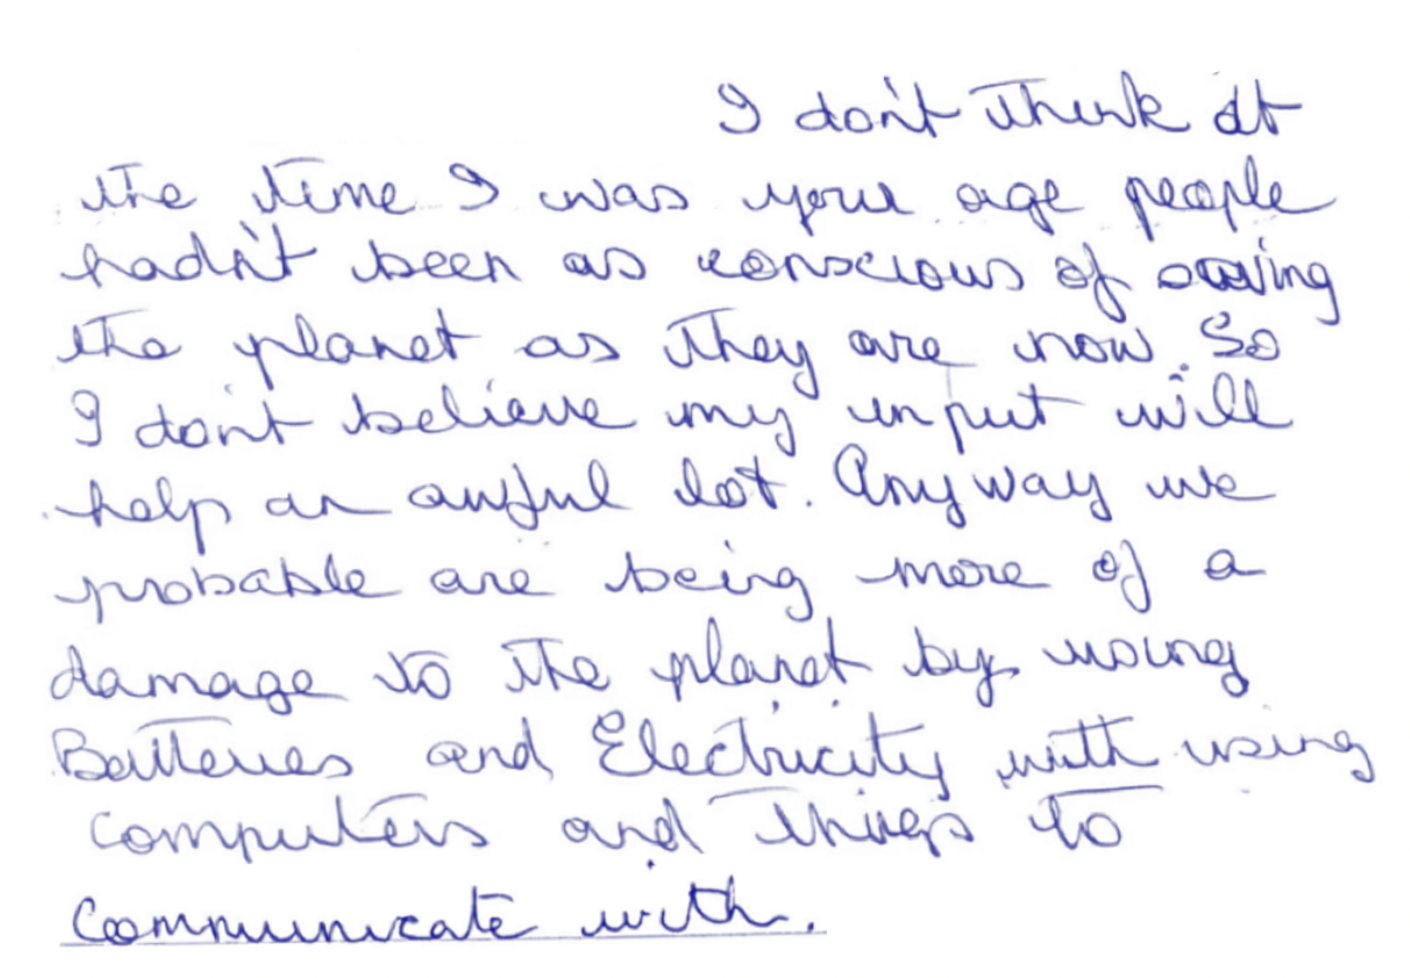 I don't think at
the time I was your age people
hadn't been as conscious of saving
the planet as they are now. So
I don't believe my input will
help an awful lot. Anyway we
probable are being more of a
damage to the planet by using
Batteries and Electricity with using
computers and things to
communicate with.